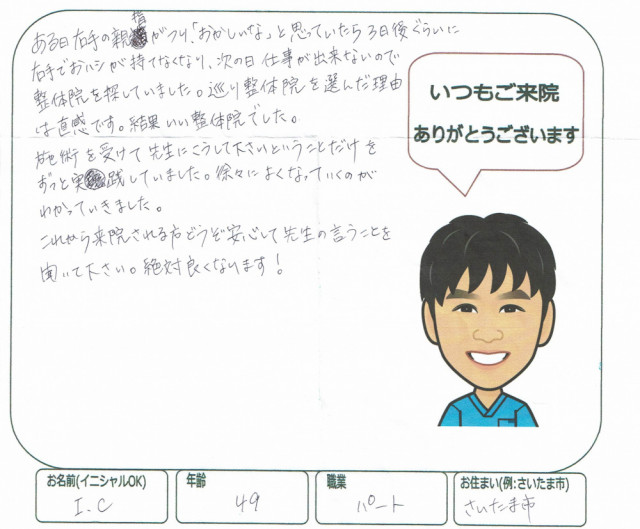 ある日右手の親指がつり、「おかしいな」と思っていたら3日後ぐらいに
右手でおハシが持てなくなり、次の日仕事が出来ないので
整体院を探していました。巡り整体院を選んだ理由
は直感です。結果いい整体院でした。
施術を受けて先生にこうして下さいということだけを
ずっと実践していました。徐々によくなっていくのが
わかっていきました。
これから来院される方どうぞ安心して先生の言うことを
聞いて下さい。絶対良くなります!
いつもご来院
ありがとうございます
お名前(イニシャルOK)
I.C
年齢
49
職業
パート
お住まい(例:さいたま市)
さいたま市